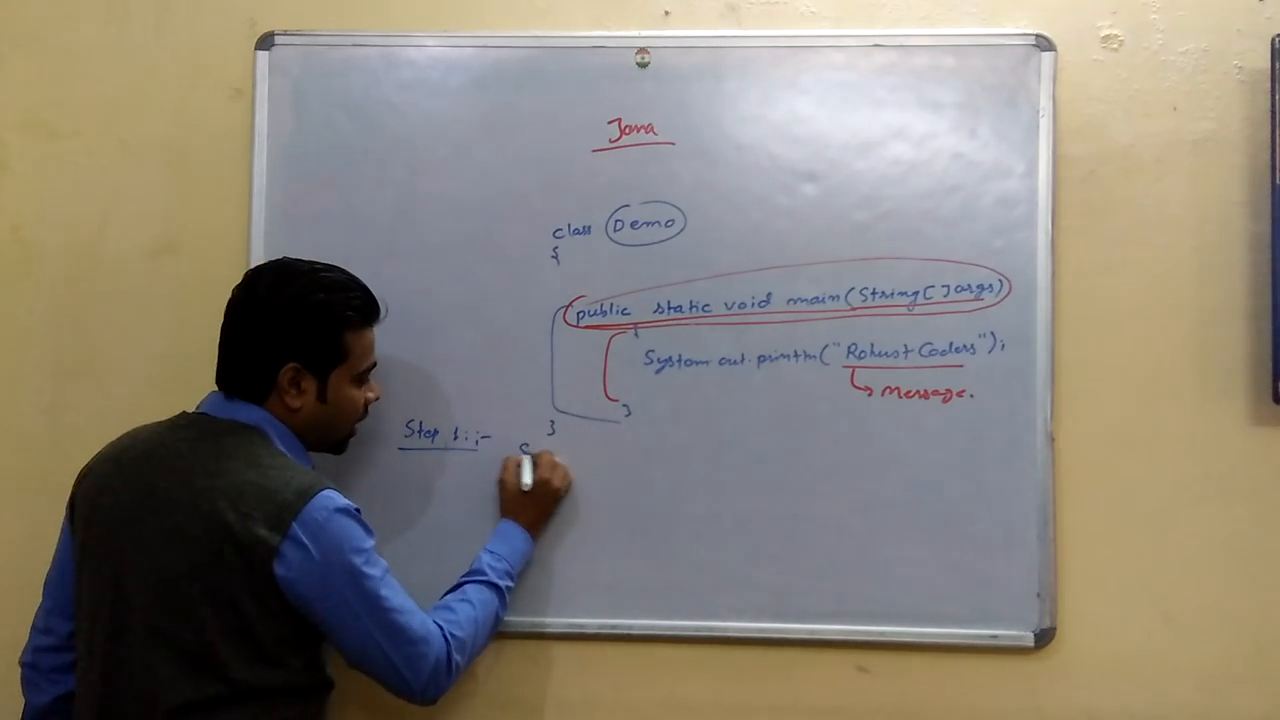 Java
class Demo
{
public static void main(String[]args)
{
System.out.println("Robust Coders");
→ Message.
}
}
Step 1:;- S